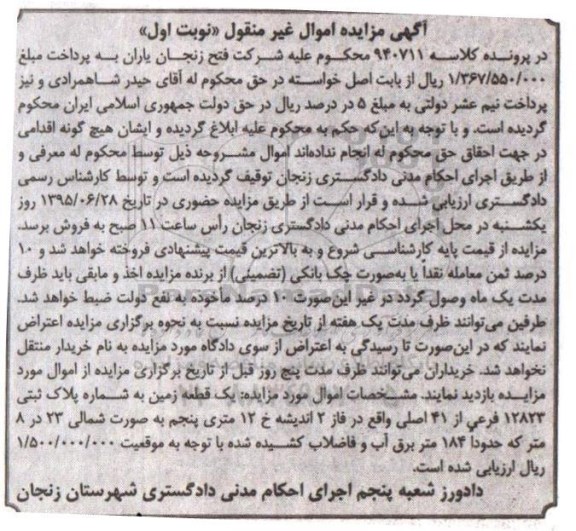 آگهی مزایده اموال غیر منقول «نوبت اول»
در پرونده کلاسه ۹۴۰۷۱۱ محکوم علیه شرکت فتح زنجان یاران به پرداخت مبلغ
۱/۳۶۷/۵۵۰/۰۰۰ ریال از بابت اصل خواسته در حق محکوم له آقای حیدر شاهمرادی و نیز
پرداخت نیم عشر دولتی به مبلغ ۵ در درصد ریال در حق دولت جمهوری اسلامی ایران محکوم
گردیده است. و با توجه به این‌که حکم به محکوم علیه ابلاغ گردیده و ایشان هیچ گونه اقدامی
در جهت احقاق حق محکوم له انجام نداده‌اند اموال مشروحه ذیل توسط محکوم له معرفی و
از طریق اجرای احکام مدنی دادگستری زنجان توقیف گردیده است و توسط کارشناس رسمی
دادگستری ارزیابی شده و قرار است از طریق مزایده حضوری در تاریخ ۱۳۹۵/۰۶/۲۸ روز
یکشنبه در محل اجرای احکام مدنی دادگستری زنجان رأس ساعت ۱۱ صبح به فروش برسد.
مزایده از قیمت پایه کارشناسی شروع و به بالاترین قیمت پیشنهادی فروخته خواهد شد و ۱۰
درصد ثمن معامله نقداً یا به‌صورت چک بانکی (تضمینی) از برنده مزایده اخذ و مابقی باید ظرف
مدت یک ماه وصول گردد در غیر این‌صورت ۱۰ درصد ماخوذه به نفع دولت ضبط خواهد شد.
طرفین می‌توانند ظرف مدت یک هفته از تاریخ مزایده نسبت به نحوه برگزاری مزایده اعتراض
نمایند که در این‌صورت تا رسیدگی به اعتراض از سوی دادگاه مورد مزایده به نام خریدار منتقل
نخواهد شد. خریداران می‌توانند ظرف مدت پنج روز قبل از تاریخ برگزاری مزایده از اموال مورد
مزایده بازدید نمایند. مشخصات اموال مورد مزایده: یک قطعه زمین به شماره پلاک ثبتی
۱۲۸۲۳ فرعی از ۴۱ اصلی واقع در فاز ۲ اندیشه خ ۱۲ متری پنجم به صورت شمالی ۲۳ در ۸
متر که حدوداً ۱۸۴ متر برق آب و فاضلاب کشیده شده با توجه به موقعیت ۱/۵۰۰/۰۰۰/۰۰۰
ریال ارزیابی شده است.
دادورز شعبه پنجم اجرای احکام مدنی دادگستری شهرستان زنجان